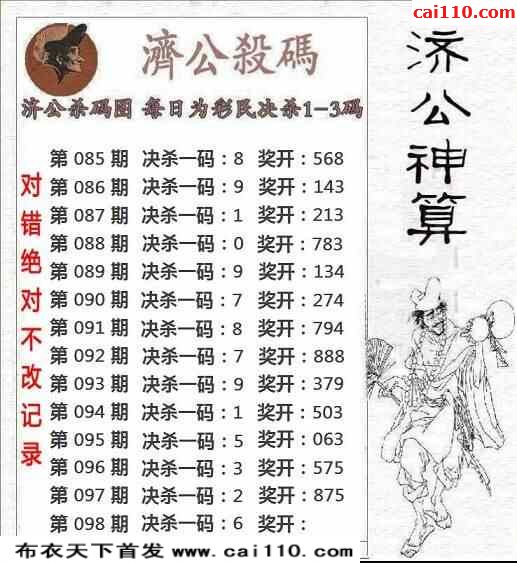 cai110.com
濟公殺碼
济公杀码图 每日为彩民决杀1-3码
济公神算
对错绝对不改记录
第 085 期 决杀一码：8 奖开：568
第 086 期 决杀一码：9 奖开：143
第 087 期 决杀一码：1 奖开：213
第 088 期 决杀一码：0 奖开：783
第 089 期 决杀一码：9 奖开：134
第 090 期 决杀一码：7 奖开：274
第 091 期 决杀一码：8 奖开：794
第 092 期 决杀一码：7 奖开：888
第 093 期 决杀一码：9 奖开：379
第 094 期 决杀一码：1 奖开：503
第 095 期 决杀一码：5 奖开：063
第 096 期 决杀一码：3 奖开：575
第 097 期 决杀一码：2 奖开：875
第 098 期 决杀一码：6 奖开：
布衣天下首发 www.cai110.com